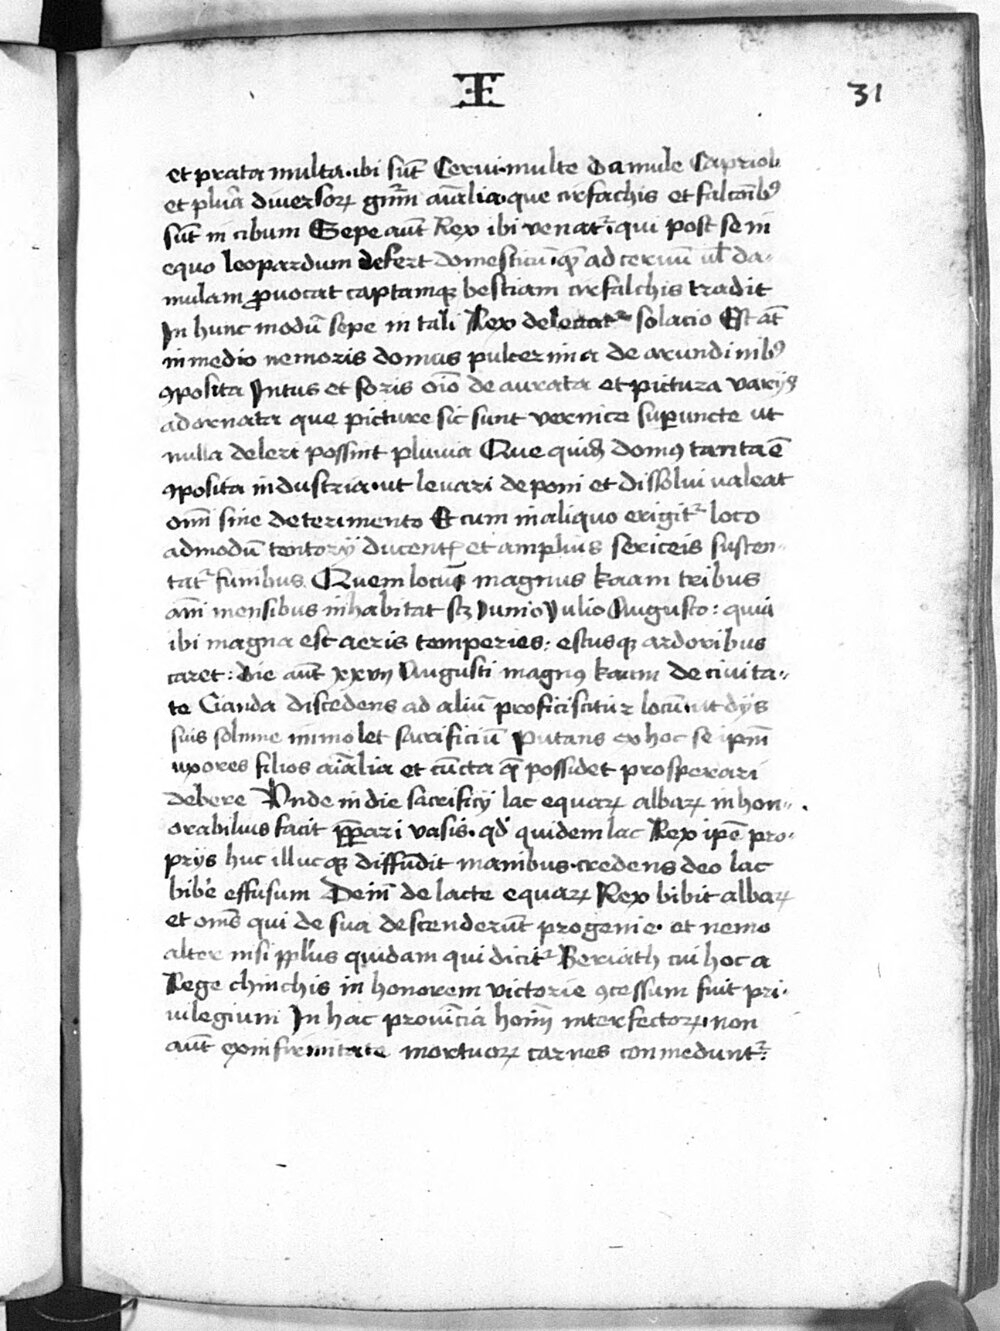 31
et prata multa · ibi sūt Cerui · multe Damule Caprioli
et pluā diuersoꝝ gn̄m aīalia · que cirfachis et falconibꝰ
sūt in cibum Sepe aūt Rex ibi venatᷣ · qui post se in
equo leopardum defert domesticū · qͣꝫ ad ceruū ul̄ da-
mulam ꝓuocat captamqꝫ bestiam cirfalchis tradit
In hunc modū sepe in tali Rex delectatᷣ solacio Est at̄
in medio nemoris domus pulcerima de arundinibꝰ
ꝯposita Intus et foris oīo deaurata et pictura varijs
adornata que picture sic sunt vernice suꝑuncte ut
nulla deleri possint pluuia Que quid̄ domꝰ tanta ē
ꝯposita industria · ut leuari deponi et dissolui ualeat
om̄i sine deterimento Et cum in aliquo erigitᷣ loco
admodū tentorij ducentꝭ et amplius sericeis susten-
tatᷣ funibus. Quem locū magnus kaam tribus
ani mensibus inhabitat scꝫ Iunio Iulio Augusto : quia
ibi magna est aeris temperies : estusqꝫ ardoribus
caret : Die aūt xxvij Augusti magnꝰ kaam de ciuita-
te Cianda discedens ad aliū proficiscitur locū · ut dijs
suis solmne immolet sacrificiū Putans ex hoc se ip̄m
uxores filios aīalia et cūcta q̄ possidet prosperari
debere Unde in die sacrificij lac equaꝝ albaꝝ in hon-
orabilius facit p̄ꝑari vasis · qd̓ quidem lac Rex ip̄e pro-
prijs huc illucqꝫ diffūdit manibus · credens deo lac
bibe̓ effusum Dein̄ de lacte equaꝝ Rex bibit albaꝝ
et om̄s qui de sua descenderūt progenie · et nemo
alter nisi pp̄l̓us quidam qui dicitᷣ Beriath cui hoc a
Rege chinchis in honorem victorie ꝯcessum fuit pri-
uilegium In hac prouīcia hoīm interfectoꝝ · non
aūt ex infirmitate mortuoꝝ carnes conmeduntᷣ :